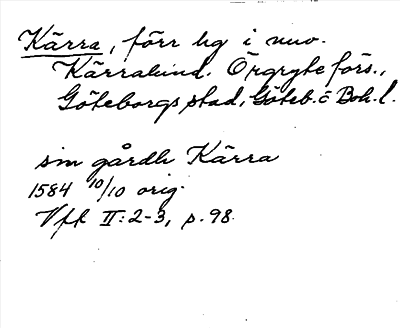 Kärra, förr hg i nuv.
Kärralund. Örgryte förs.,
Göteborgs stad, Göteb. o Boh. l.
sin gårdh Kärra
1584 10/10 orig.
Vfft II:2-3, p. 98.